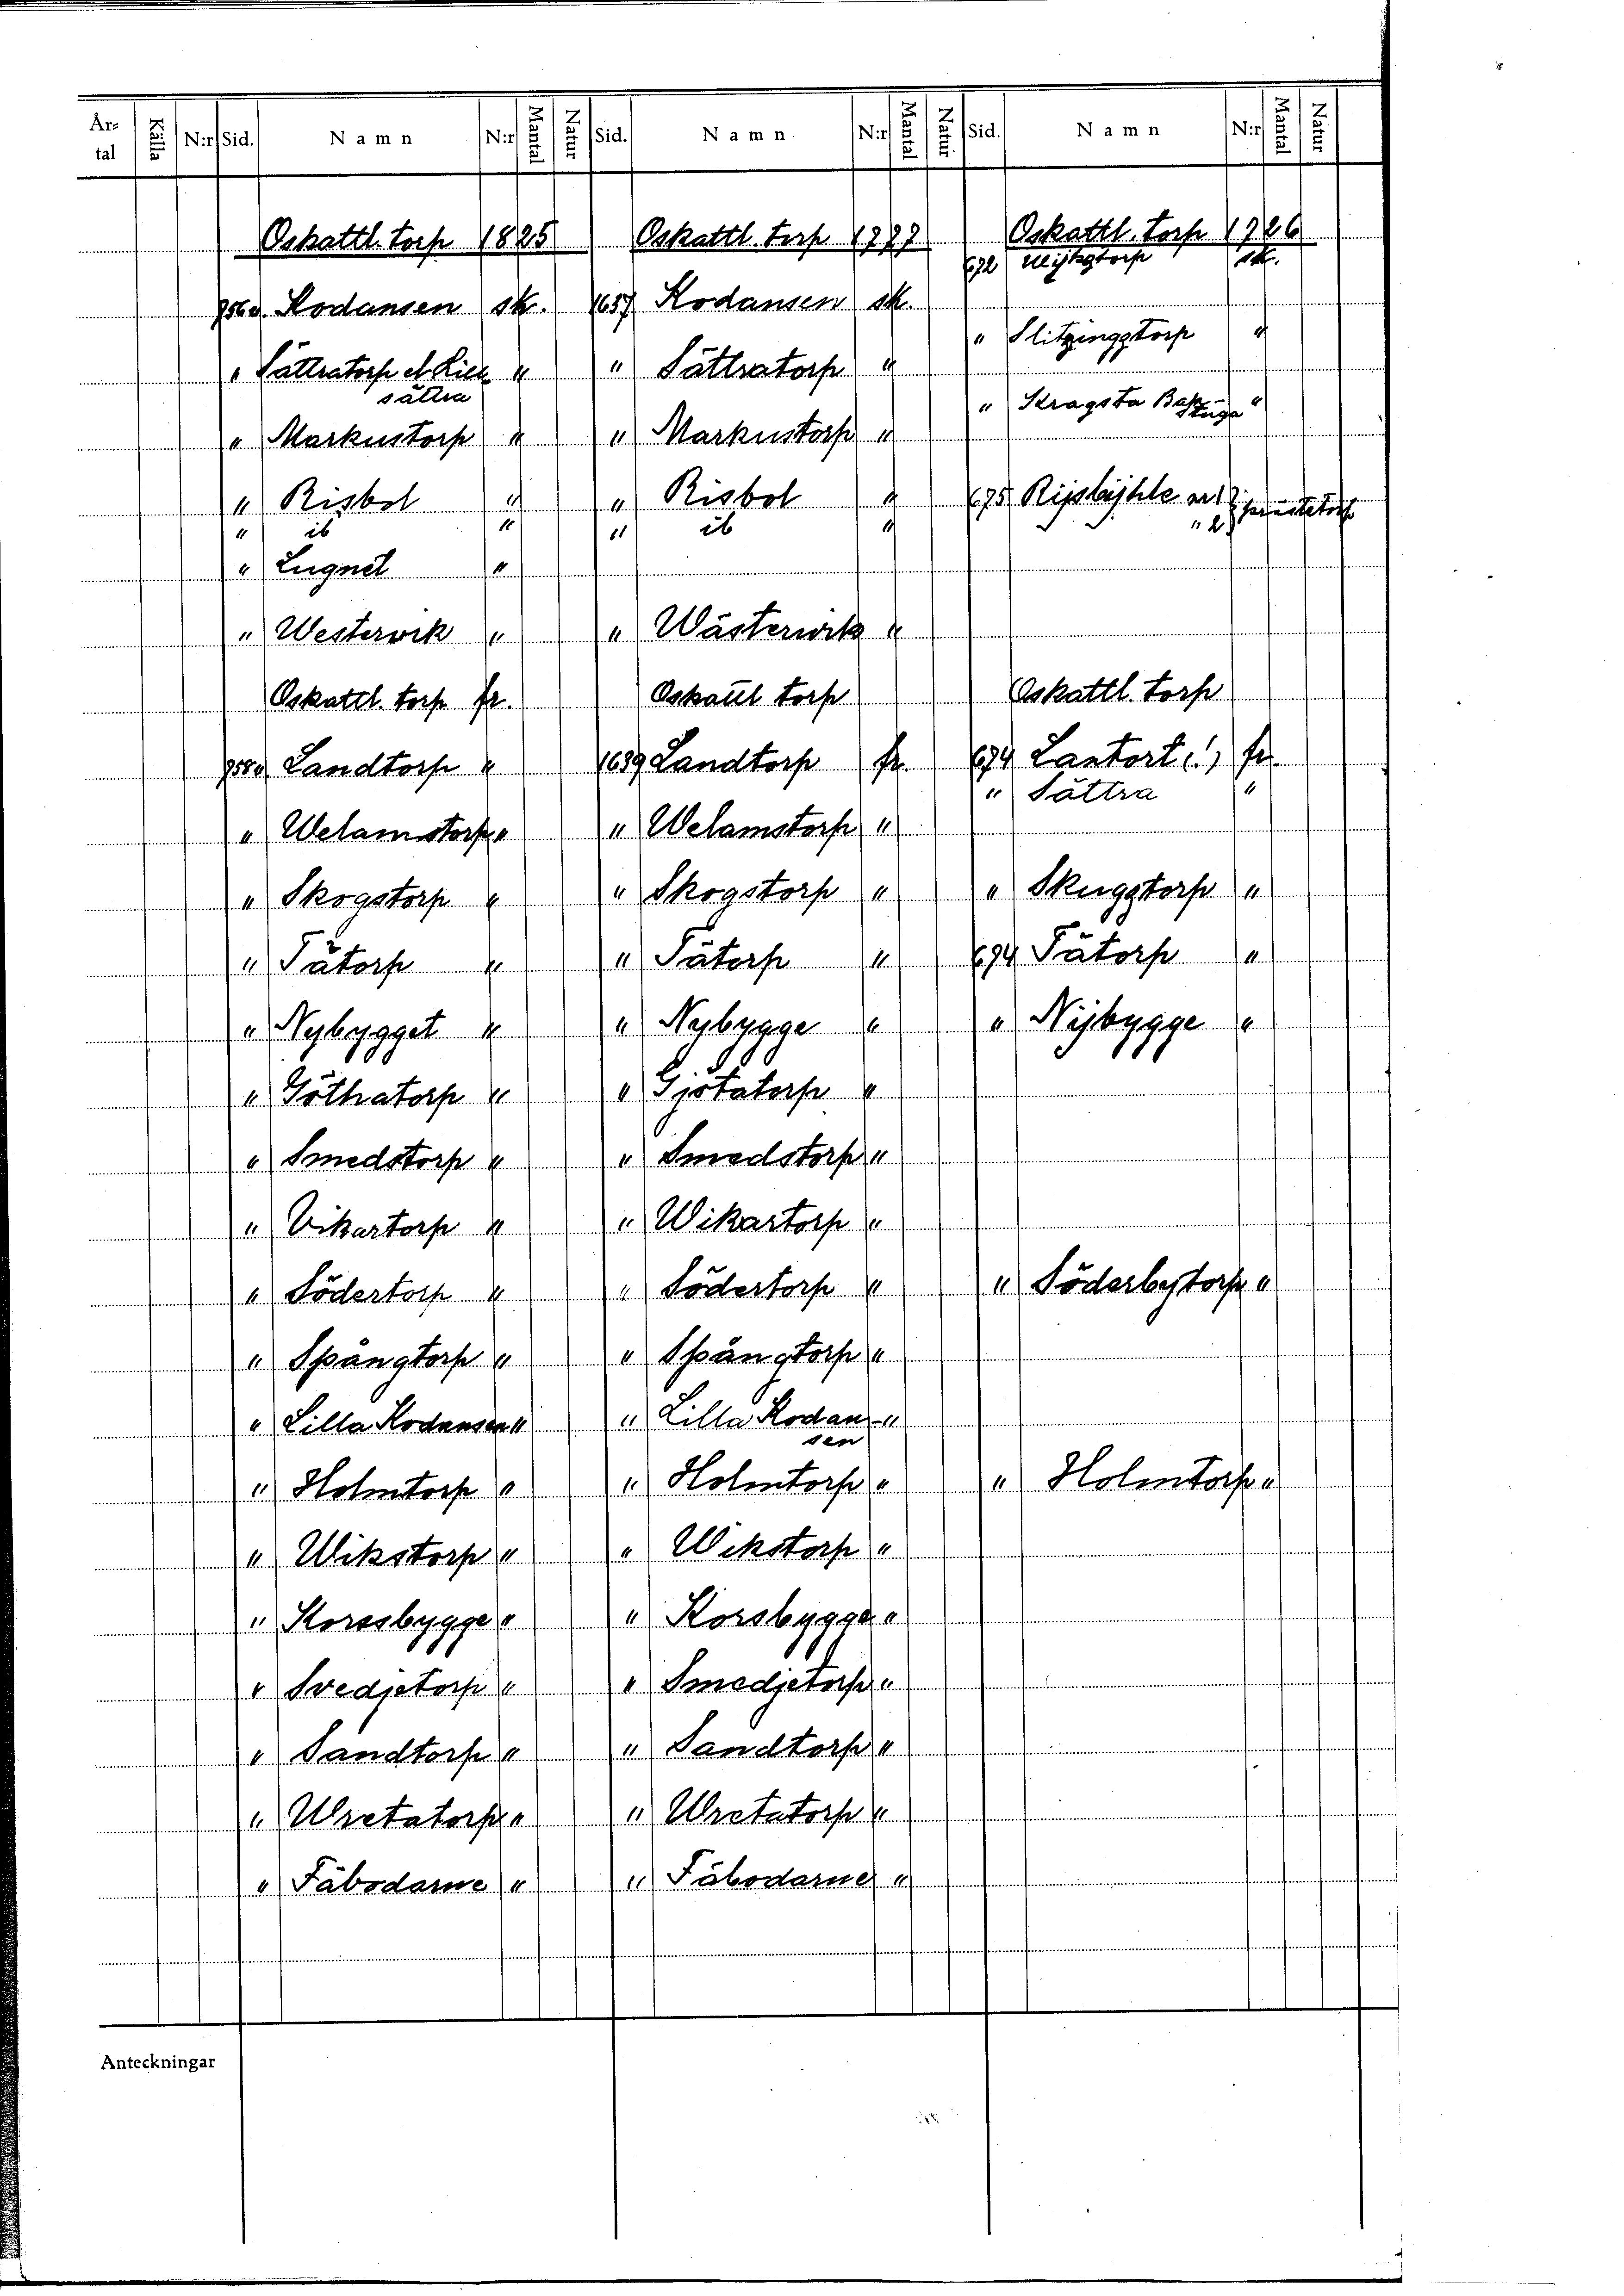 År-tal Källa N:r Sid. Namn N:r Mantal Natur Sid. Namn. N:r Mantal Natur. Sid. Namn N:r Mantal Natur
Oskattl. torp 1825 Oskattl. torp 1777 Oskattl. torp 1726
672 sk.
Kodansen sk. 1657 Kodansen sk.
" Slitzinggstorp "
" Sättratorp et Lice " " Sättratorp "
sättra
" Kragsta Bak-stuga "
" Markustorp " " Markustorp "
" Risbol " " Risbol " 675
" ib " " ib " " 2
" Lugnet "
" Westerwik " " Wästerwik "
Oskattl. torp fr. Oskattl torp Oskattl. torp
Landtorp " 1659 Landtorp fr. 674 Lantort (!) fr.
" Sättra "
" Welamstorp " " Welamstorp "
" Skogstorp " " Skogstorp " " Skugstorp "
" Tåtorp " " Tåtorp " 674 Tåtorp "
" Nybygget " " Nybygge " " Nijbygge "
" Göthatorp " " Gjötatorp "
" Smedstorp " " Smedstorp "
" Vikartorp " " Wikartorp "
" Södertorp " " Södertorp " " Söderbytorp "
" Spångtorp " " Spångtorp "
" Lilla Kodansen " " Lilla Kodan- "
sen
" Holmtorp " " Holmtorp " " Holmtorp "
" Wikstorp " " Wikstorp "
" Korssbygge " " Korsbygge "
" Svedjetorp " " Smedjetorp "
" Sandtorp " " Sandtorp "
" Wretatorp " " Wretatorp "
" Fäbodarne " " Fäbodarne "
Anteckningar